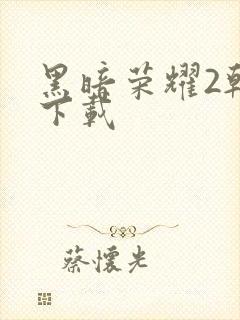 黑暗荣耀2韩
下载
蔡懷光